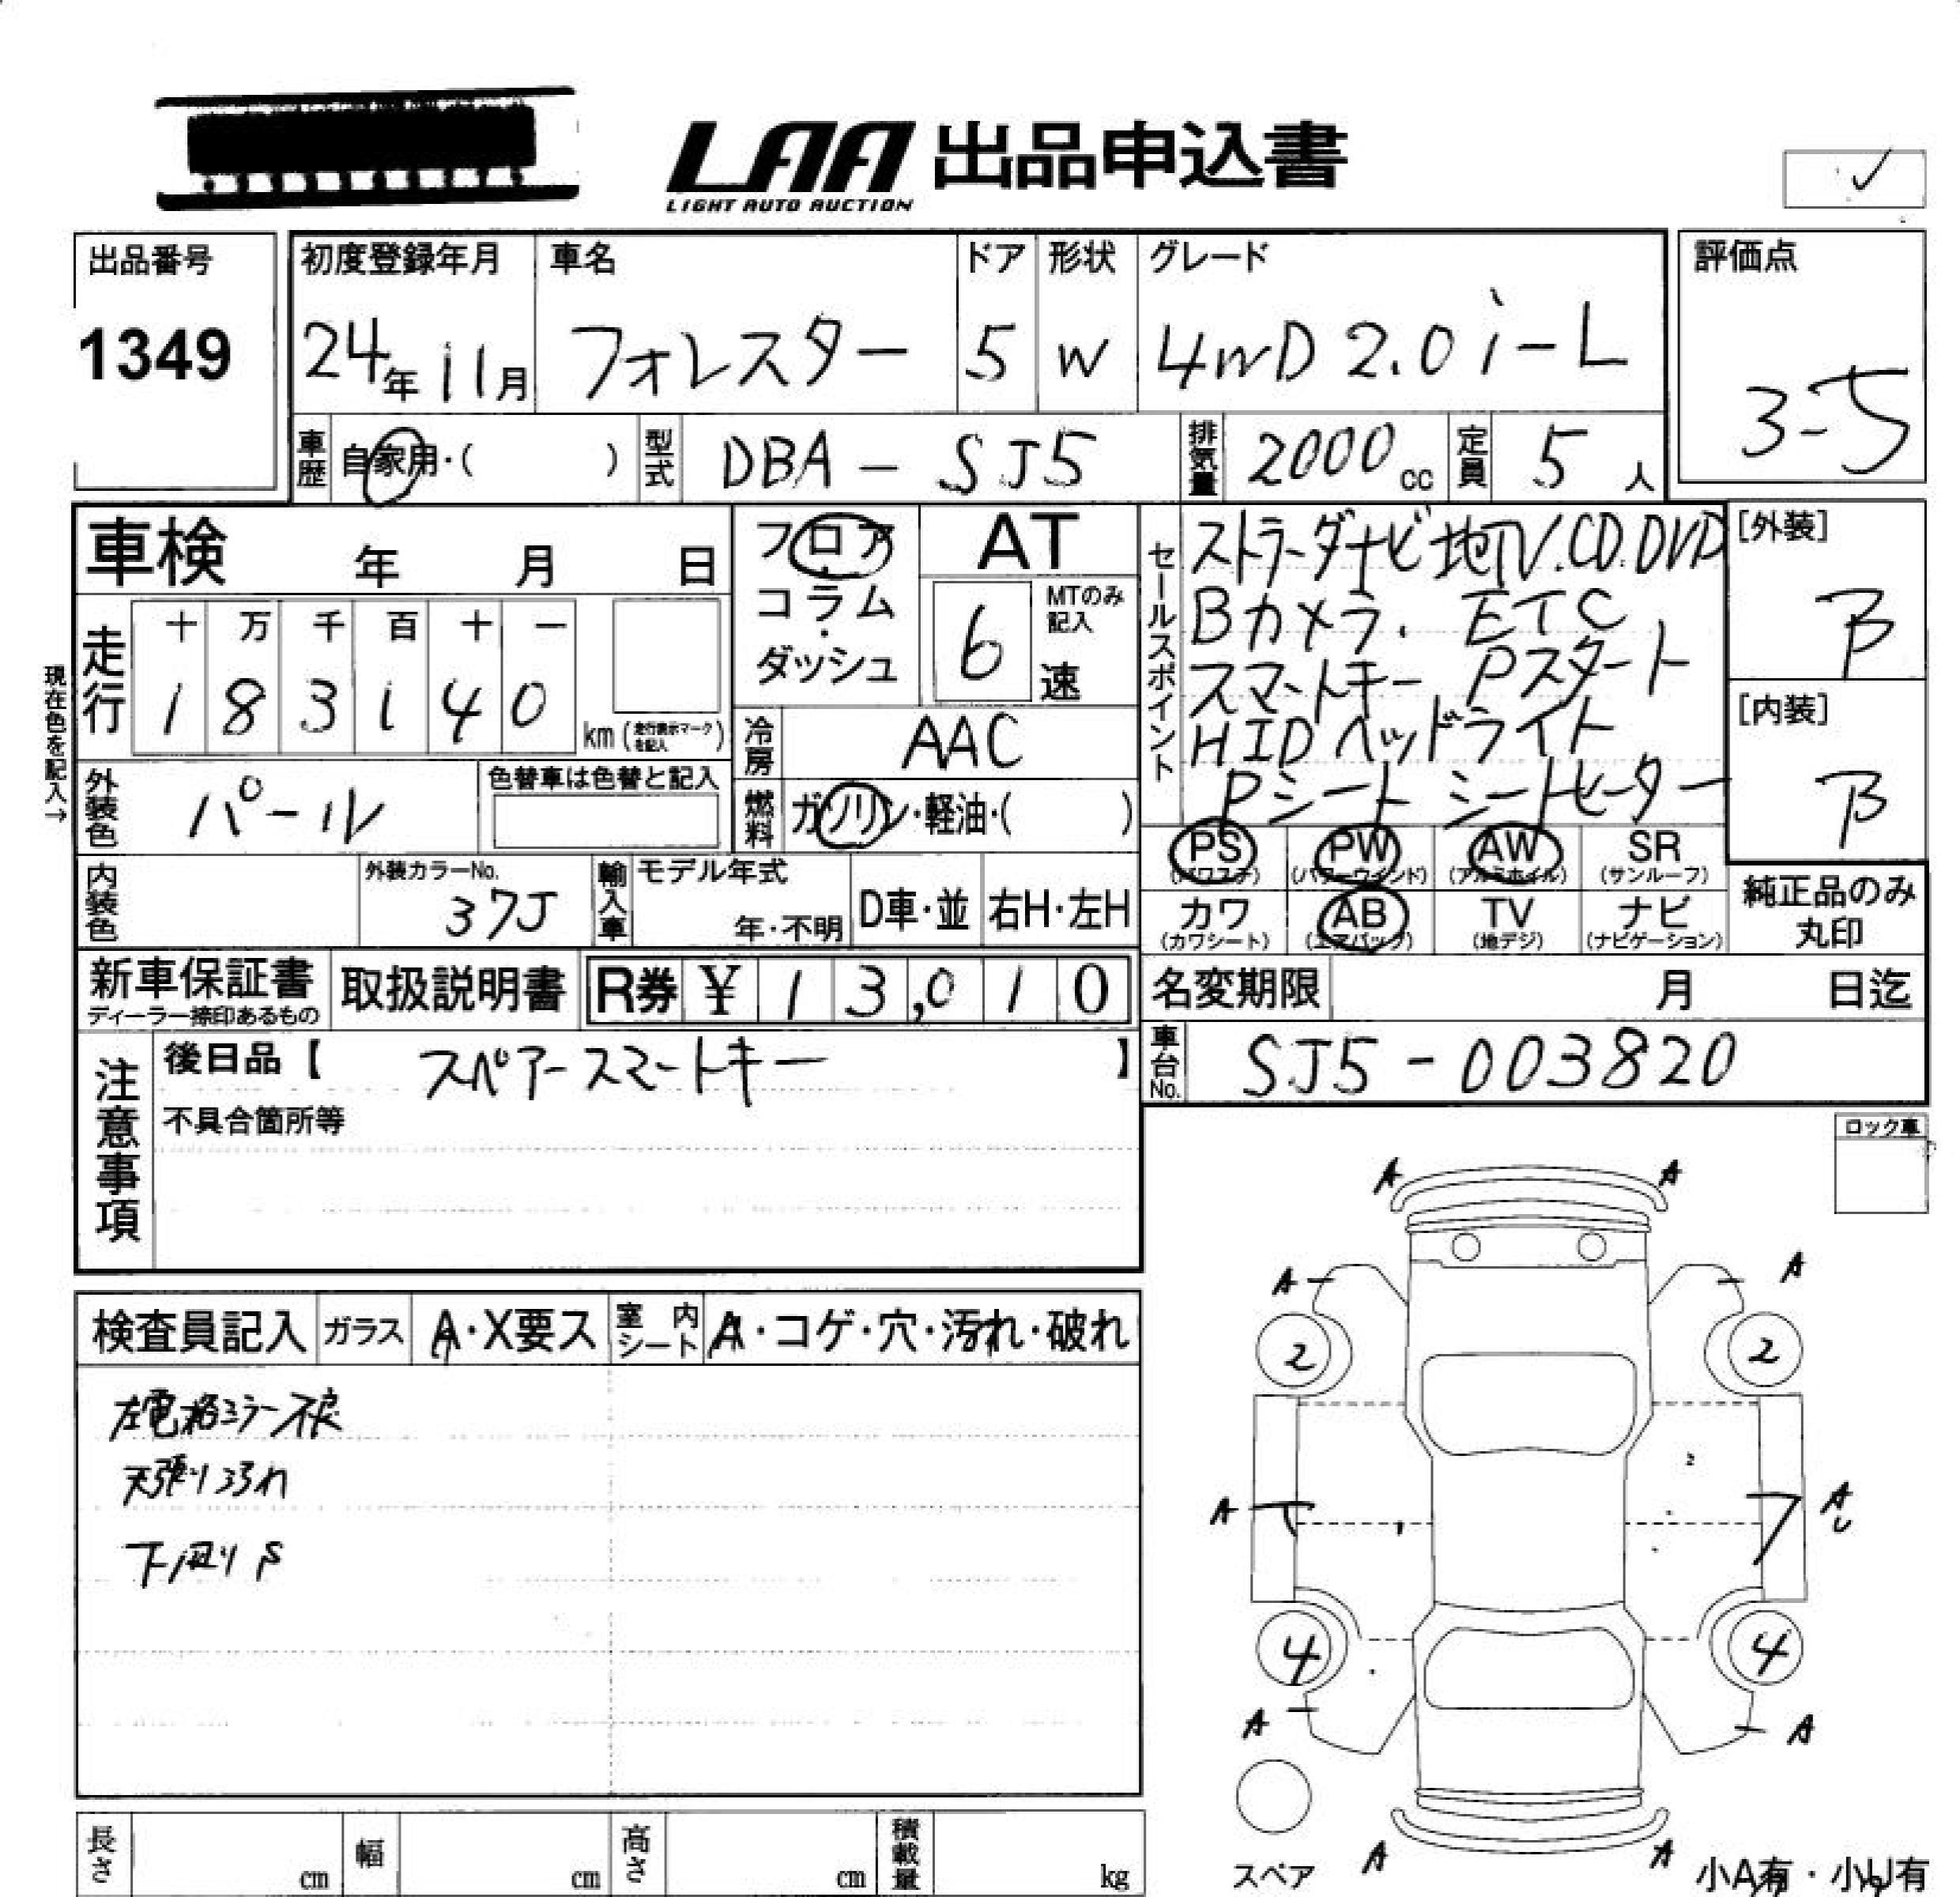 LAA 出品申込書
LIGHT AUTO AUCTION
出品番号
1349
初度登録年月 車名 ドア 形状 グレード
24年 11月 フォレスター 5 W 4WD 2.0 i-L
評価点
3-5
車歴 自家用・( ) 型式 DBA - SJ5 排気量 2000cc 定員 5人
車検 年 月 日
フロア
コラム
・
ダッシュ
AT
6 速
MTのみ
記入
現在色を記入→
走行
十 万 千 百 十 一
1 8 3 1 4 0
km (走行表示マークを記入)
冷房 AAC
燃料 ガソリン・軽油・( )
外装色 パール
色替車は色替と記入
内装色
外装カラーNo.
37J
輸入車 モデル年式
年・不明 D車・並 右H・左H
セールスポイント
ストラーダナビ 地TV.CD.DVD
Bカメラ. ETC
スマートキー Pスタート
HIDヘッドライト
Pシート シートヒーター
[外装]
B
[内装]
B
PS PW AW SR
(パワステ) (パワーウインド) (アルミホイル) (サンルーフ)
カワ AB TV ナビ
(カワシート) (エアバッグ) (地デジ) (ナビゲーション)
純正品のみ
丸印
新車保証書
ディーラー捺印あるもの
取扱説明書
R券 ¥ 13,010
名変期限 月 日迄
車台No. SJ5 - 003820
注意事項
後日品【 スペアースマートキー 】
不具合箇所等
ロック車
検査員記入 ガラス A・X要ス 室内シート A・コゲ・穴・汚れ・破れ
左電格ミラー不良
天張り汚れ
下廻りS
A A
A A
2 2
A A
U
4 4
A A
A A
スペア
小A有・小U有
長さ cm 幅 cm 高さ cm 積載量 kg